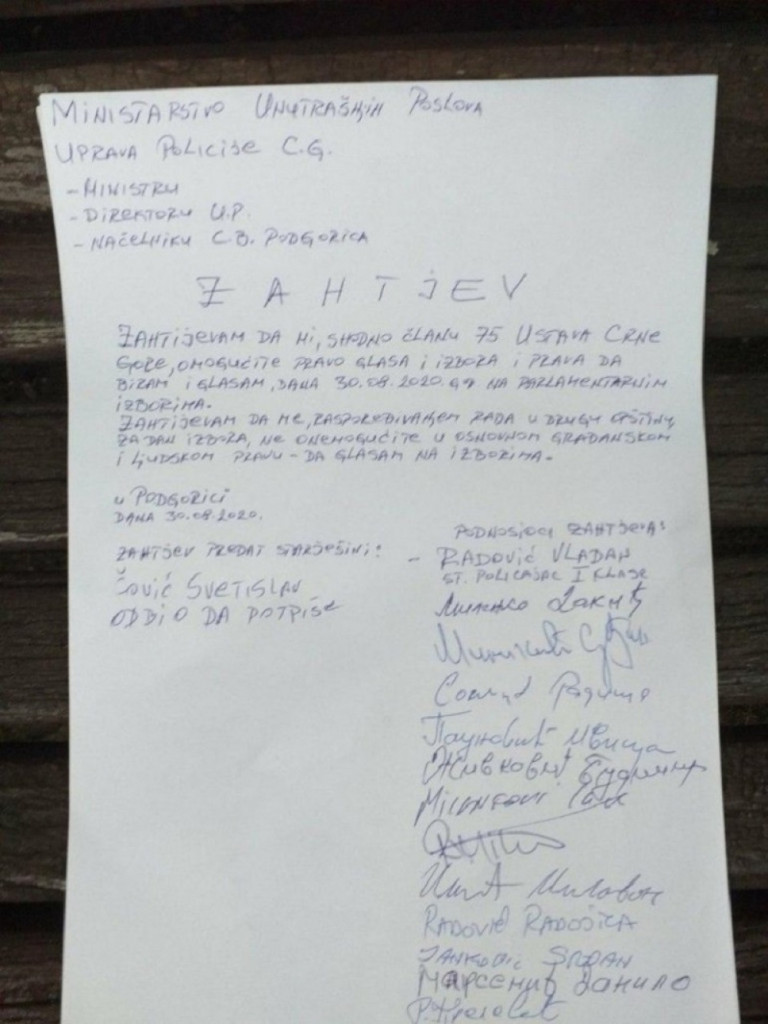 MINISTARSTVO UNUTRAŠNJIH POSLOVA
UPRAVA POLICIJE C.G.
- MINISTRU
- DIREKTORU U.P.
- NAČELNIKU C.B. PODGORICA
ZAHTJEV
ZAHTIJEVAM DA MI, SHODNO ČLANU 75 USTAVA CRNE
GORE, OMOGUĆITE PRAVO GLASA I IZBORA I PRAVA DA
BIRAM I GLASAM, DANA 30.08.2020. NA PARLAMENTARNIM
IZBORIMA.
ZAHTIJEVAM DA ME, RASPOREĐIVANJEM RADA U DRUGU OPŠTINU,
ZA DAN IZBORA, NE ONEMOGUĆITE U OSNOVNOM GRAĐANSKOM
I LJUDSKOM PRAVU - DA GLASAM NA IZBORIMA.
U PODGORICI
DANA 30.08.2020.
PODNOSIOCI ZAHTJEVA:
ZAHTJEV PREDAT STARJEŠINI:
- RADOVIĆ VLADAN
ST. POLICAJAC I KLASE
ČOVIĆ SVETISLAV
ODBIO DA POTPIŠE
Пауновић Ивица
Живковић
RADOVIĆ RADOŠICA
JANKOVIĆ SRĐAN
Марсенић Данило